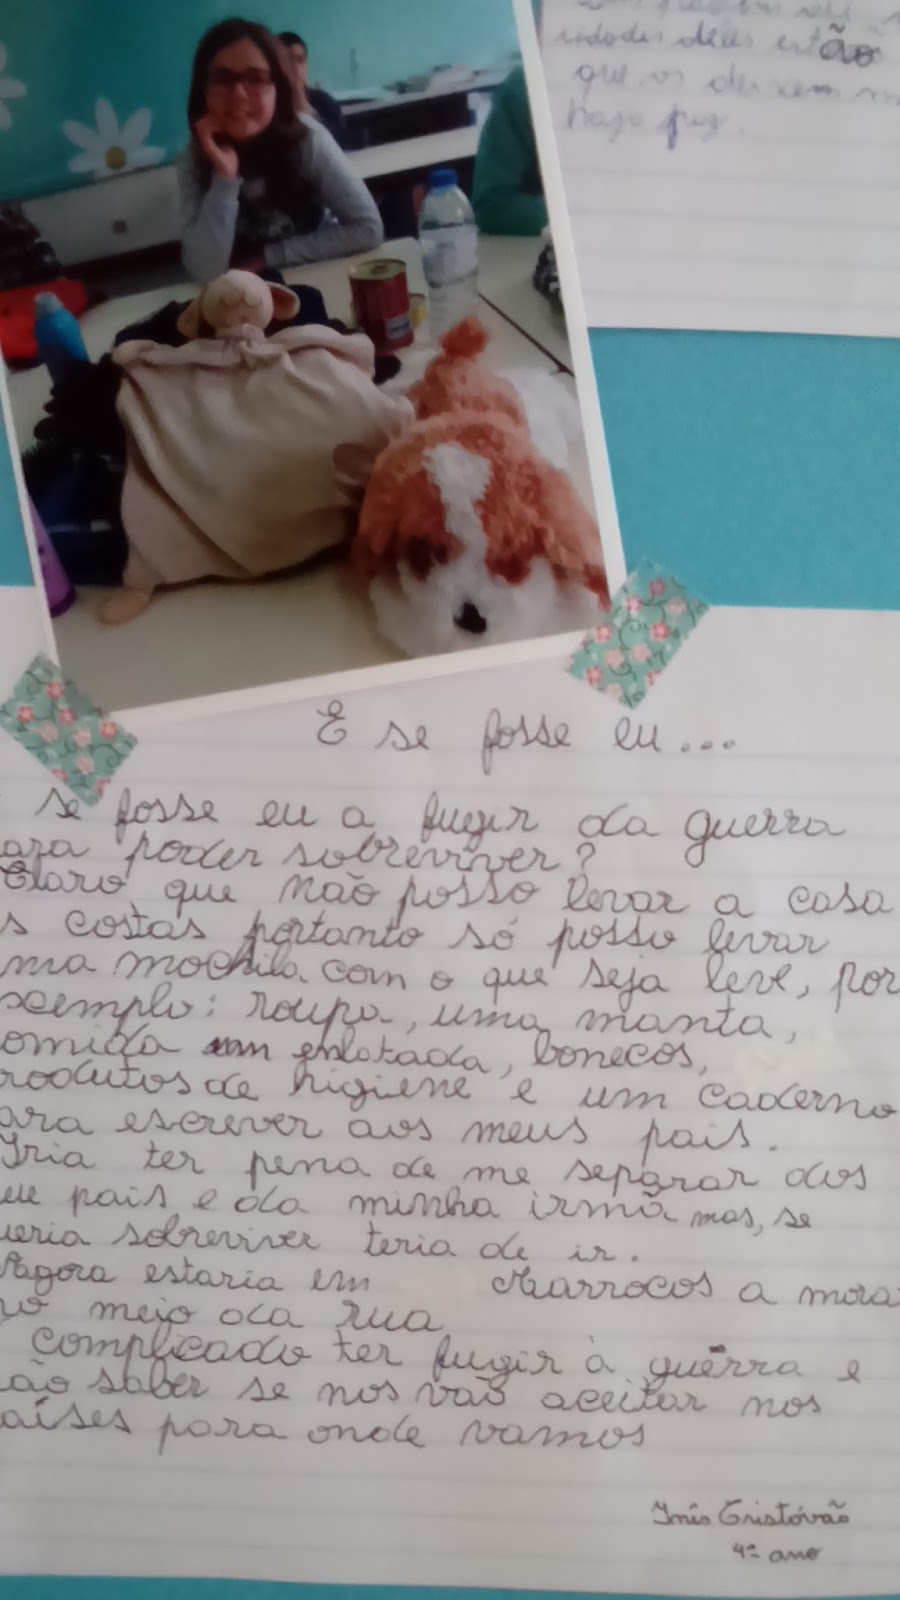 cidades deles estão
que os deixem
haja paz.
E se fosse eu...
se fosse eu a fugir da guerra
ara poder sobreviver?
Claro, que não posso levar a casa
s costas portanto só posso levar
ma mochila com o que seja leve, por
xemplo: roupa, uma manta,
omida enlatada, bonecos,
rodutos de higiene e um caderno
ara escrever aos meus pais.
Iria ter pena de me separar dos
eu pais e da minha irmã mas, se
ueria sobreviver teria de ir.
Agora estaria em Marrocos a mora
no meio da rua
complicado ter fugir à guerra e
ão saber se nos vão aceitar nos
aíses para onde vamos
Inês Cristóvão
4º ano